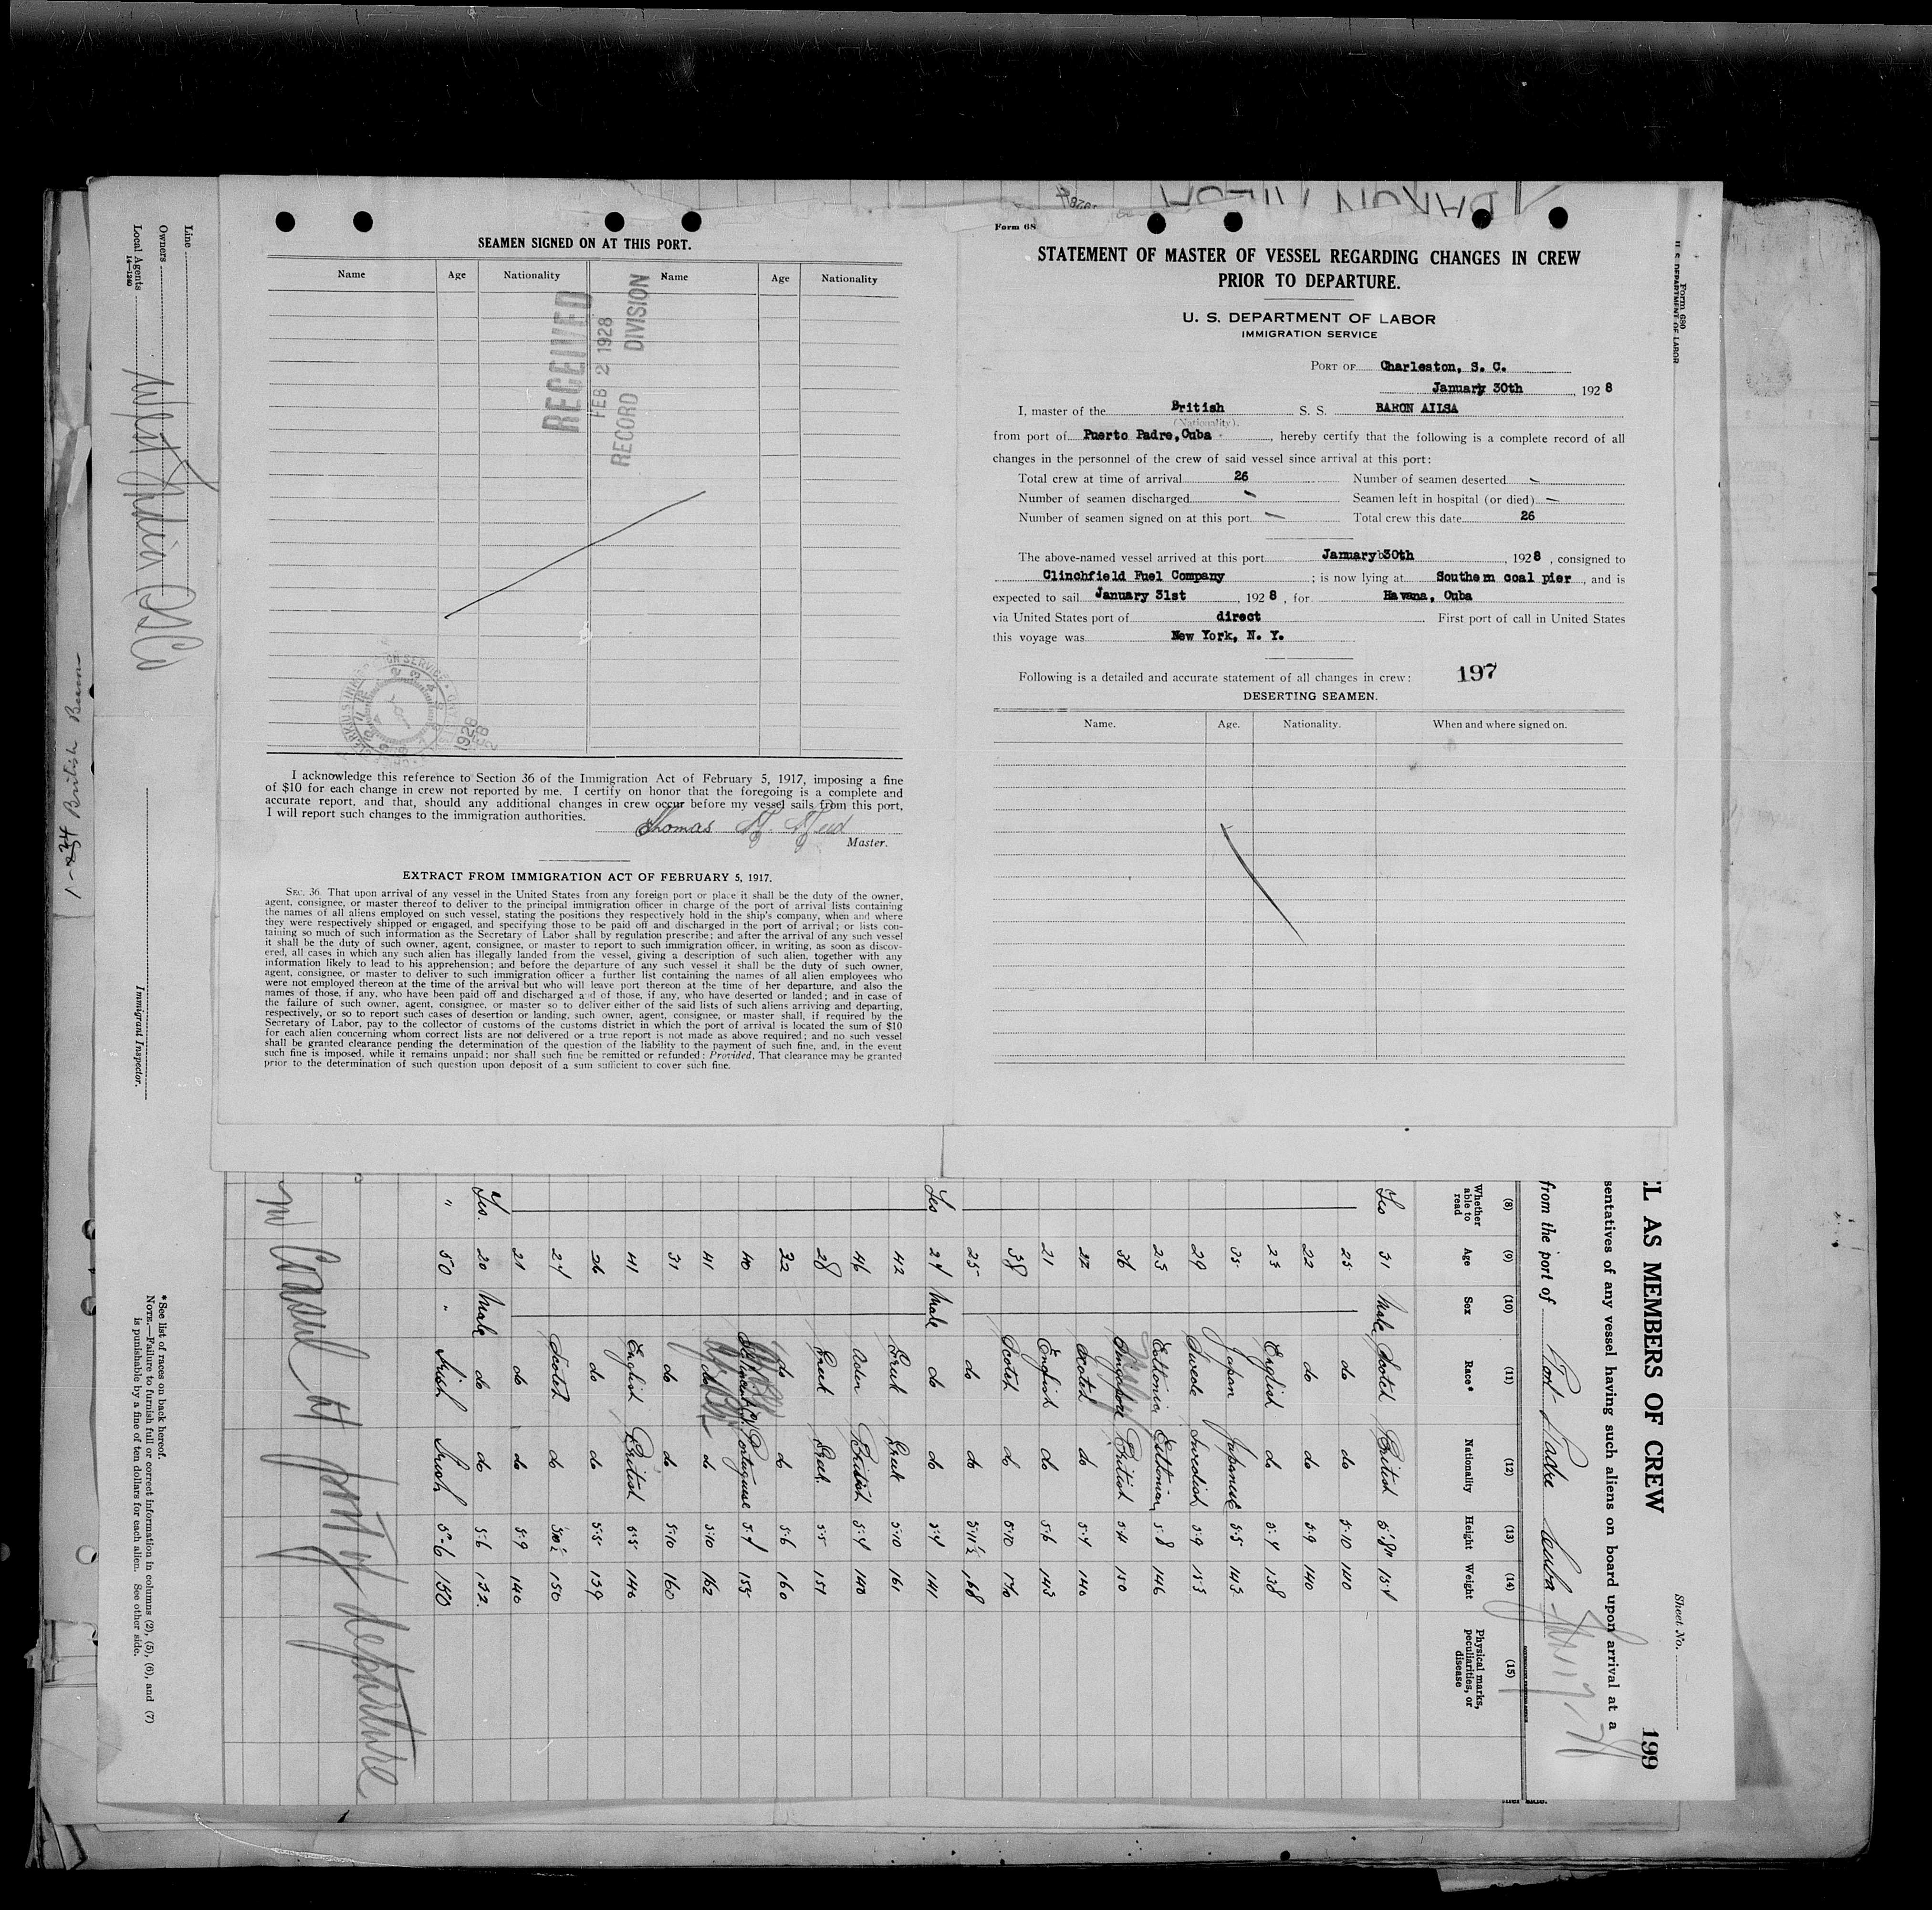 SEAMEN SIGNED ON AT THIS PORT.
Name Age Nationality Name Age Nationality
RECEIVED
FEB 2 1928
RECORD DIVISION
1928
I acknowledge this reference to Section 36 of the Immigration Act of February 5, 1917, imposing a fine
of $10 for each change in crew not reported by me. I certify on honor that the foregoing is a complete and
accurate report, and that, should any additional changes in crew occur before my vessel sails from this port,
I will report such changes to the immigration authorities.
Thomas
Master.
EXTRACT FROM IMMIGRATION ACT OF FEBRUARY 5, 1917.
SEC. 36. That upon arrival of any vessel in the United States from any foreign port or place it shall be the duty of the owner,
agent, consignee, or master thereof to deliver to the principal immigration officer in charge of the port of arrival lists containing
the names of all aliens employed on such vessel, stating the positions they respectively hold in the ship's company, when and where
they were respectively shipped or engaged, and specifying those to be paid off and discharged in the port of arrival; or lists con-
taining so much of such information as the Secretary of Labor shall by regulation prescribe; and after the arrival of any such vessel
it shall be the duty of such owner, agent, consignee, or master to report to such immigration officer, in writing, as soon as discov-
ered, all cases in which any such alien has illegally landed from the vessel, giving a description of such alien, together with any
information likely to lead to his apprehension; and before the departure of any such vessel it shall be the duty of such owner,
agent, consignee, or master to deliver to such immigration officer a further list containing the names of all alien employees who
were not employed thereon at the time of the arrival but who will leave port thereon at the time of her departure, and also the
names of those, if any, who have been paid off and discharged and of those, if any, who have deserted or landed; and in case of
the failure of such owner, agent, consignee, or master so to deliver either of the said lists of such aliens arriving and departing,
respectively, or so to report such cases of desertion or landing, such owner, agent, consignee, or master shall, if required by the
Secretary of Labor, pay to the collector of customs of the customs district in which the port of arrival is located the sum of $10
for each alien concerning whom correct lists are not delivered or a true report is not made as above required; and no such vessel
shall be granted clearance pending the determination of the question of the liability to the payment of such fine, and, in the event
such fine is imposed, while it remains unpaid; nor shall such fine be remitted or refunded: Provided, That clearance may be granted
prior to the determination of such question upon deposit of a sum sufficient to cover such fine.
Form 68
STATEMENT OF MASTER OF VESSEL REGARDING CHANGES IN CREW
PRIOR TO DEPARTURE.
U. S. DEPARTMENT OF LABOR
IMMIGRATION SERVICE
PORT OF Charleston, S. C.
January 30th, 1928
I, master of the British S. S. BARON AILSA
(Nationality).
from port of Puerto Padre, Cuba, hereby certify that the following is a complete record of all
changes in the personnel of the crew of said vessel since arrival at this port:
Total crew at time of arrival 26 Number of seamen deserted -
Number of seamen discharged - Seamen left in hospital (or died) -
Number of seamen signed on at this port - Total crew this date 26
The above-named vessel arrived at this port January 30th, 1928, consigned to
Clinchfield Fuel Company; is now lying at Southern coal pier, and is
expected to sail January 31st, 1928, for Havana, Cuba
via United States port of direct. First port of call in United States
this voyage was New York, N. Y.
Following is a detailed and accurate statement of all changes in crew: 197
DESERTING SEAMEN.
Name. Age. Nationality. When and where signed on.
Form 680
U. S. DEPARTMENT OF LABOR
Sheet No. 199
L AS MEMBERS OF CREW
sentatives of any vessel having such aliens on board upon arrival at a
from the port of Port Padre Cuba
(8) (9) (10) (11) (12) (13) (14) (15)
Whether able to read Age Sex Race* Nationality Height Weight Physical marks, peculiarities, or disease
Yes 31 Male Scotch British 5'8" 154
25 do do 5-10 140
22 do do 5-9 140
23 English do 5-4 138
35 Japan Japanese 5-5 143
29 Swede Swedish 5-9 153
23 Esthonia Esthonian 5-8 146
36 Singapore British 5-4 150
22 Scotch do 5-4 140
21 English do 5-6 143
38 Scotch do 5-10 170
25 do do 5-11½ 168
Yes 24 Male do do 5-4 141
42 Greek Greek 5-10 161
46 Aden British 5-4 140
28 Greek Greek 5-5 151
32 do do 5-6 160
40 Portuguese 5-4 155
41 do do 5-10 162
31 do do 5-10 160
41 English British 5-5 146
26 do do 5-5 139
24 Scotch do 5-10½ 150
21 do do 5-9 140
Yes. 20 Male do do 5-6 132
" 50 " Irish Irish 5-6 150
no Consul at port of departure
*See list of races on back hereof.
NOTE.—Failure to furnish full or correct information in columns (2), (5), (6), and (7)
is punishable by a fine of ten dollars for each alien. See other side.
Immigrant Inspector.
Line
Owners
Local Agents West India SS Co
14—1240